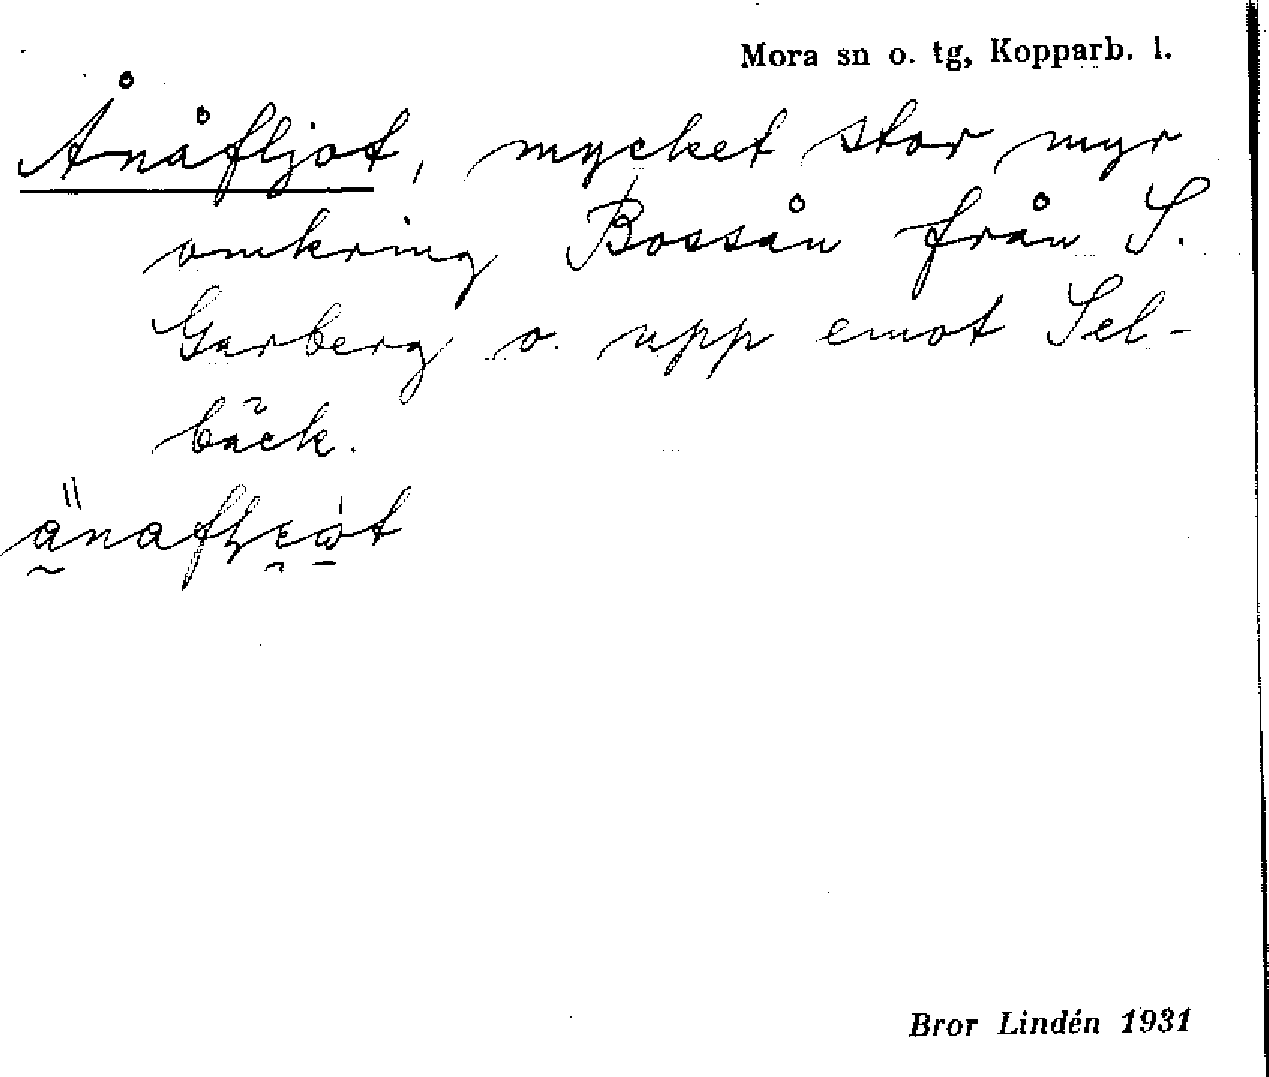 Mora sn o. tg, Kopparb. l.
Ånåfljot, mycket stor myr
omkring Bossån från S.
Garberg o. upp emot Sel-
bäck.
Bror Lindén 1931